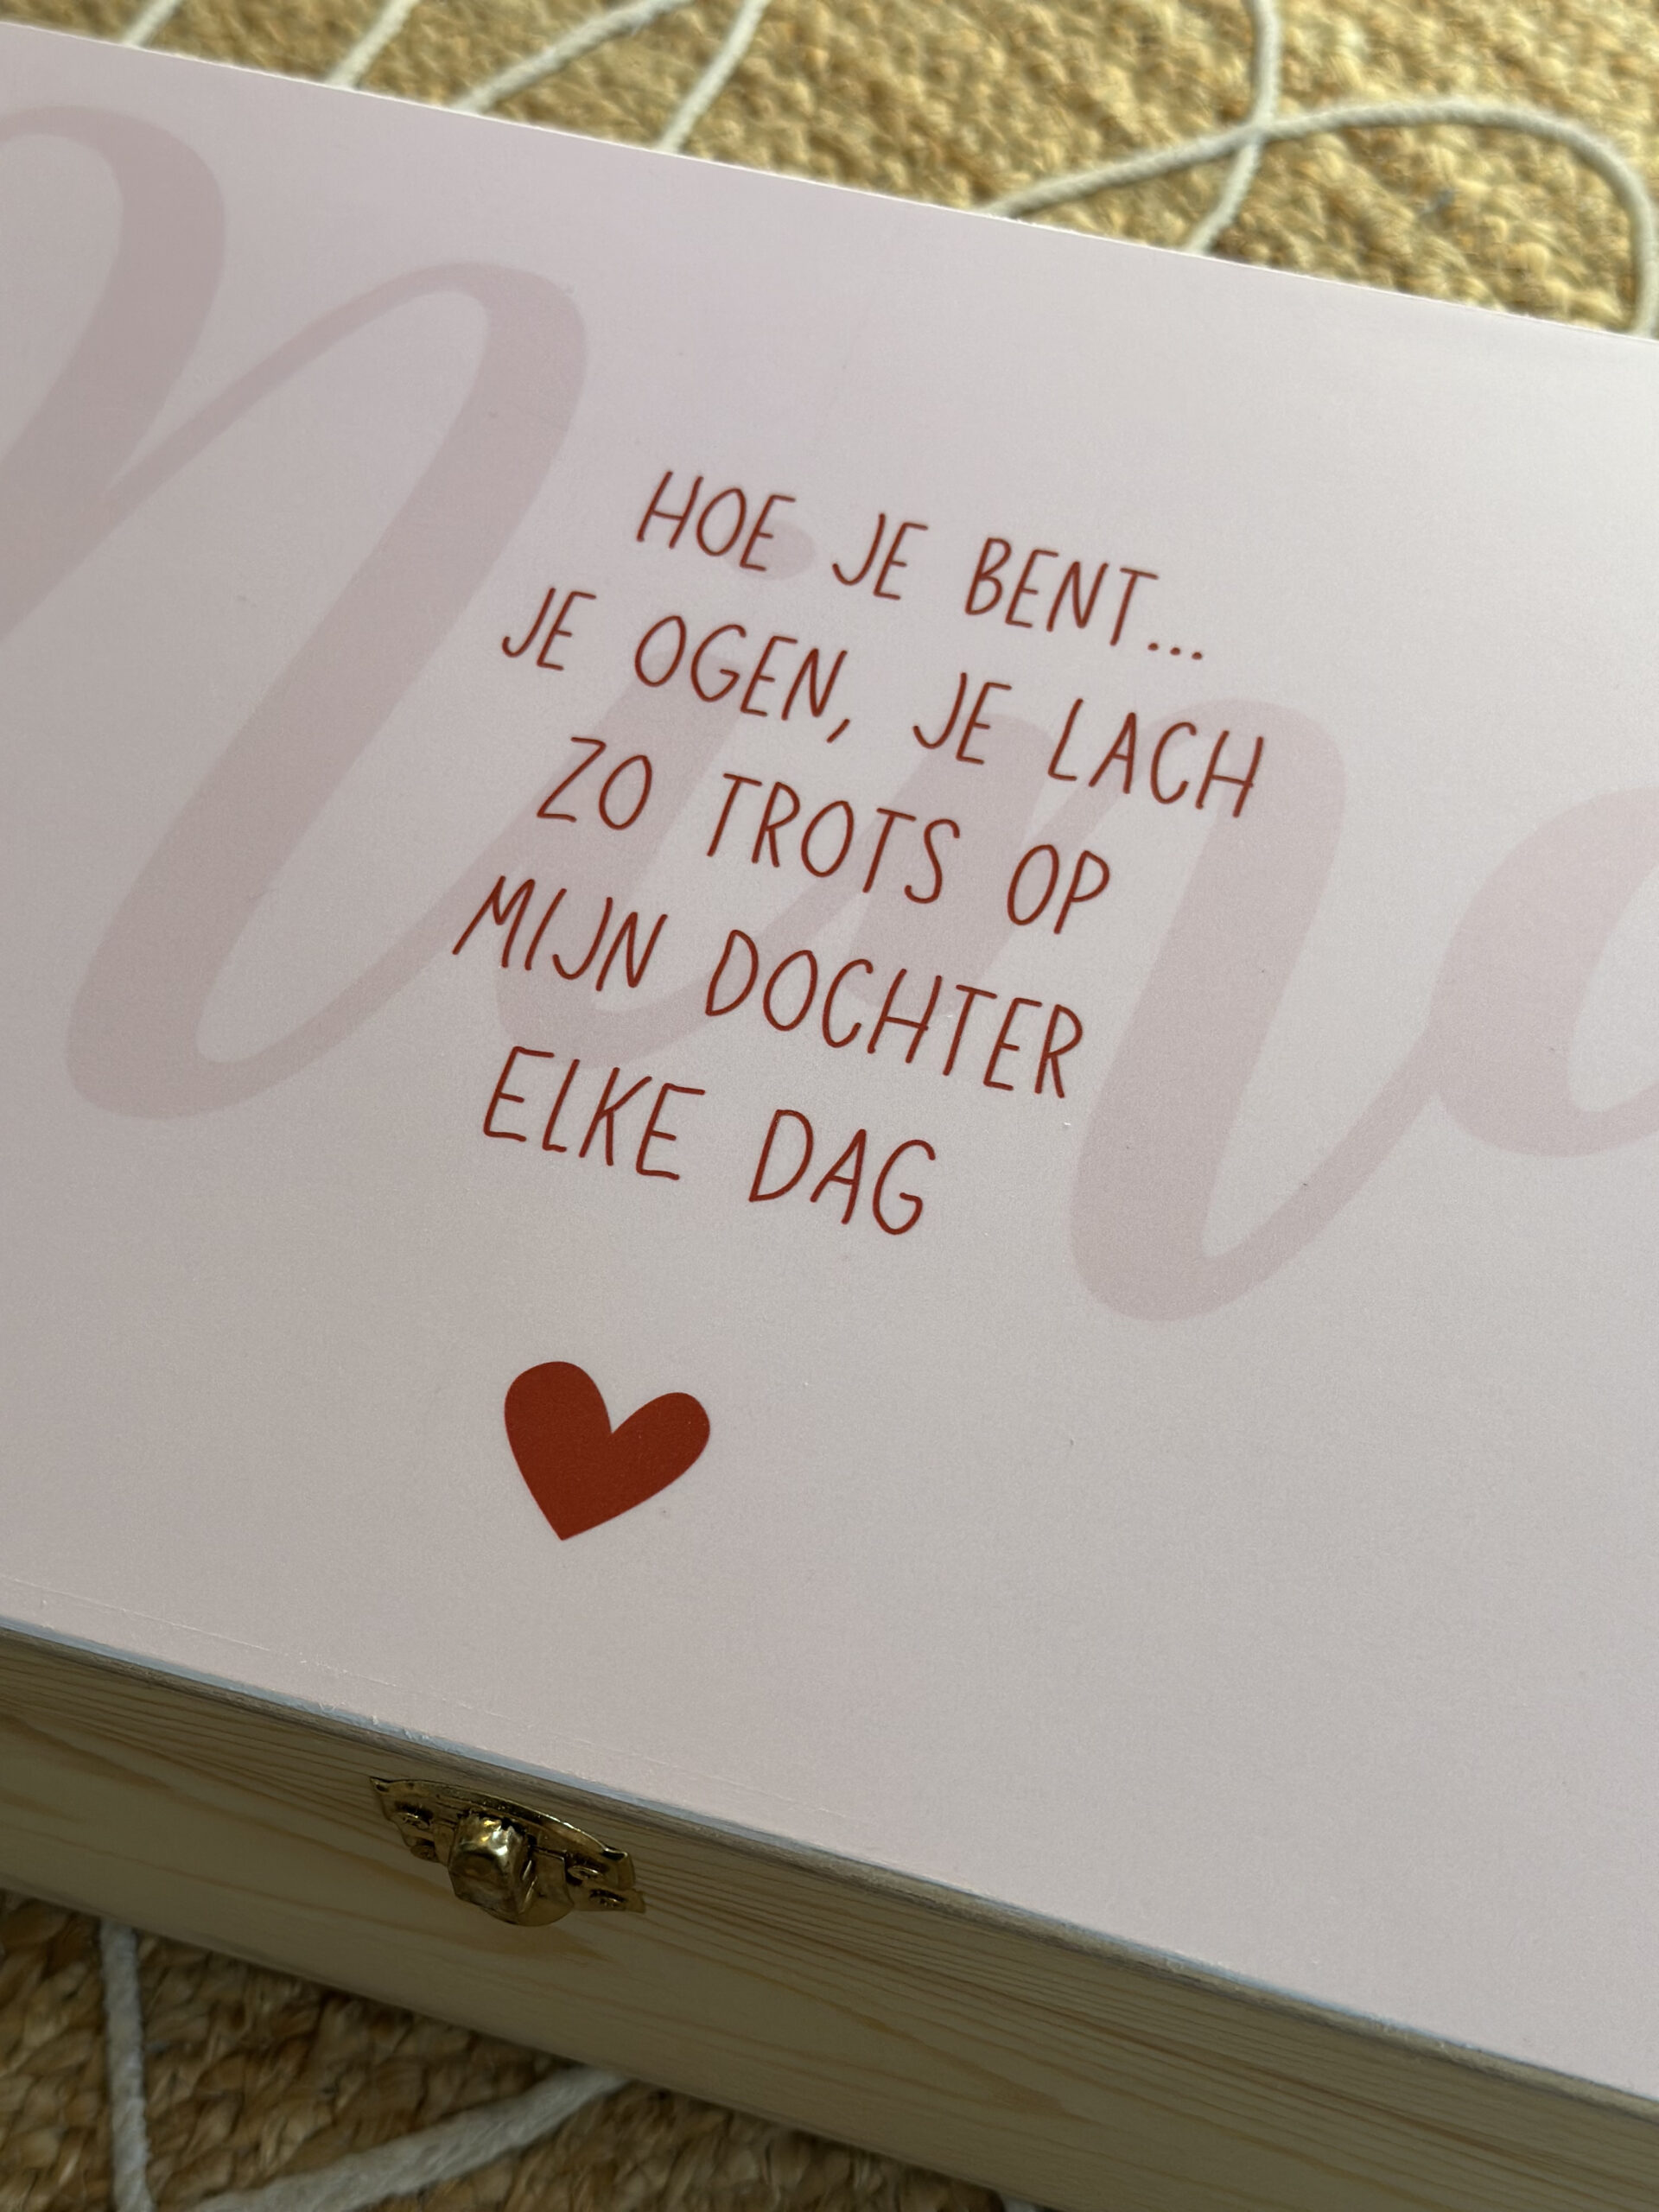 Nina
HOE JE BENT...
JE OGEN, JE LACH
ZO TROTS OP
MIJN DOCHTER
ELKE DAG